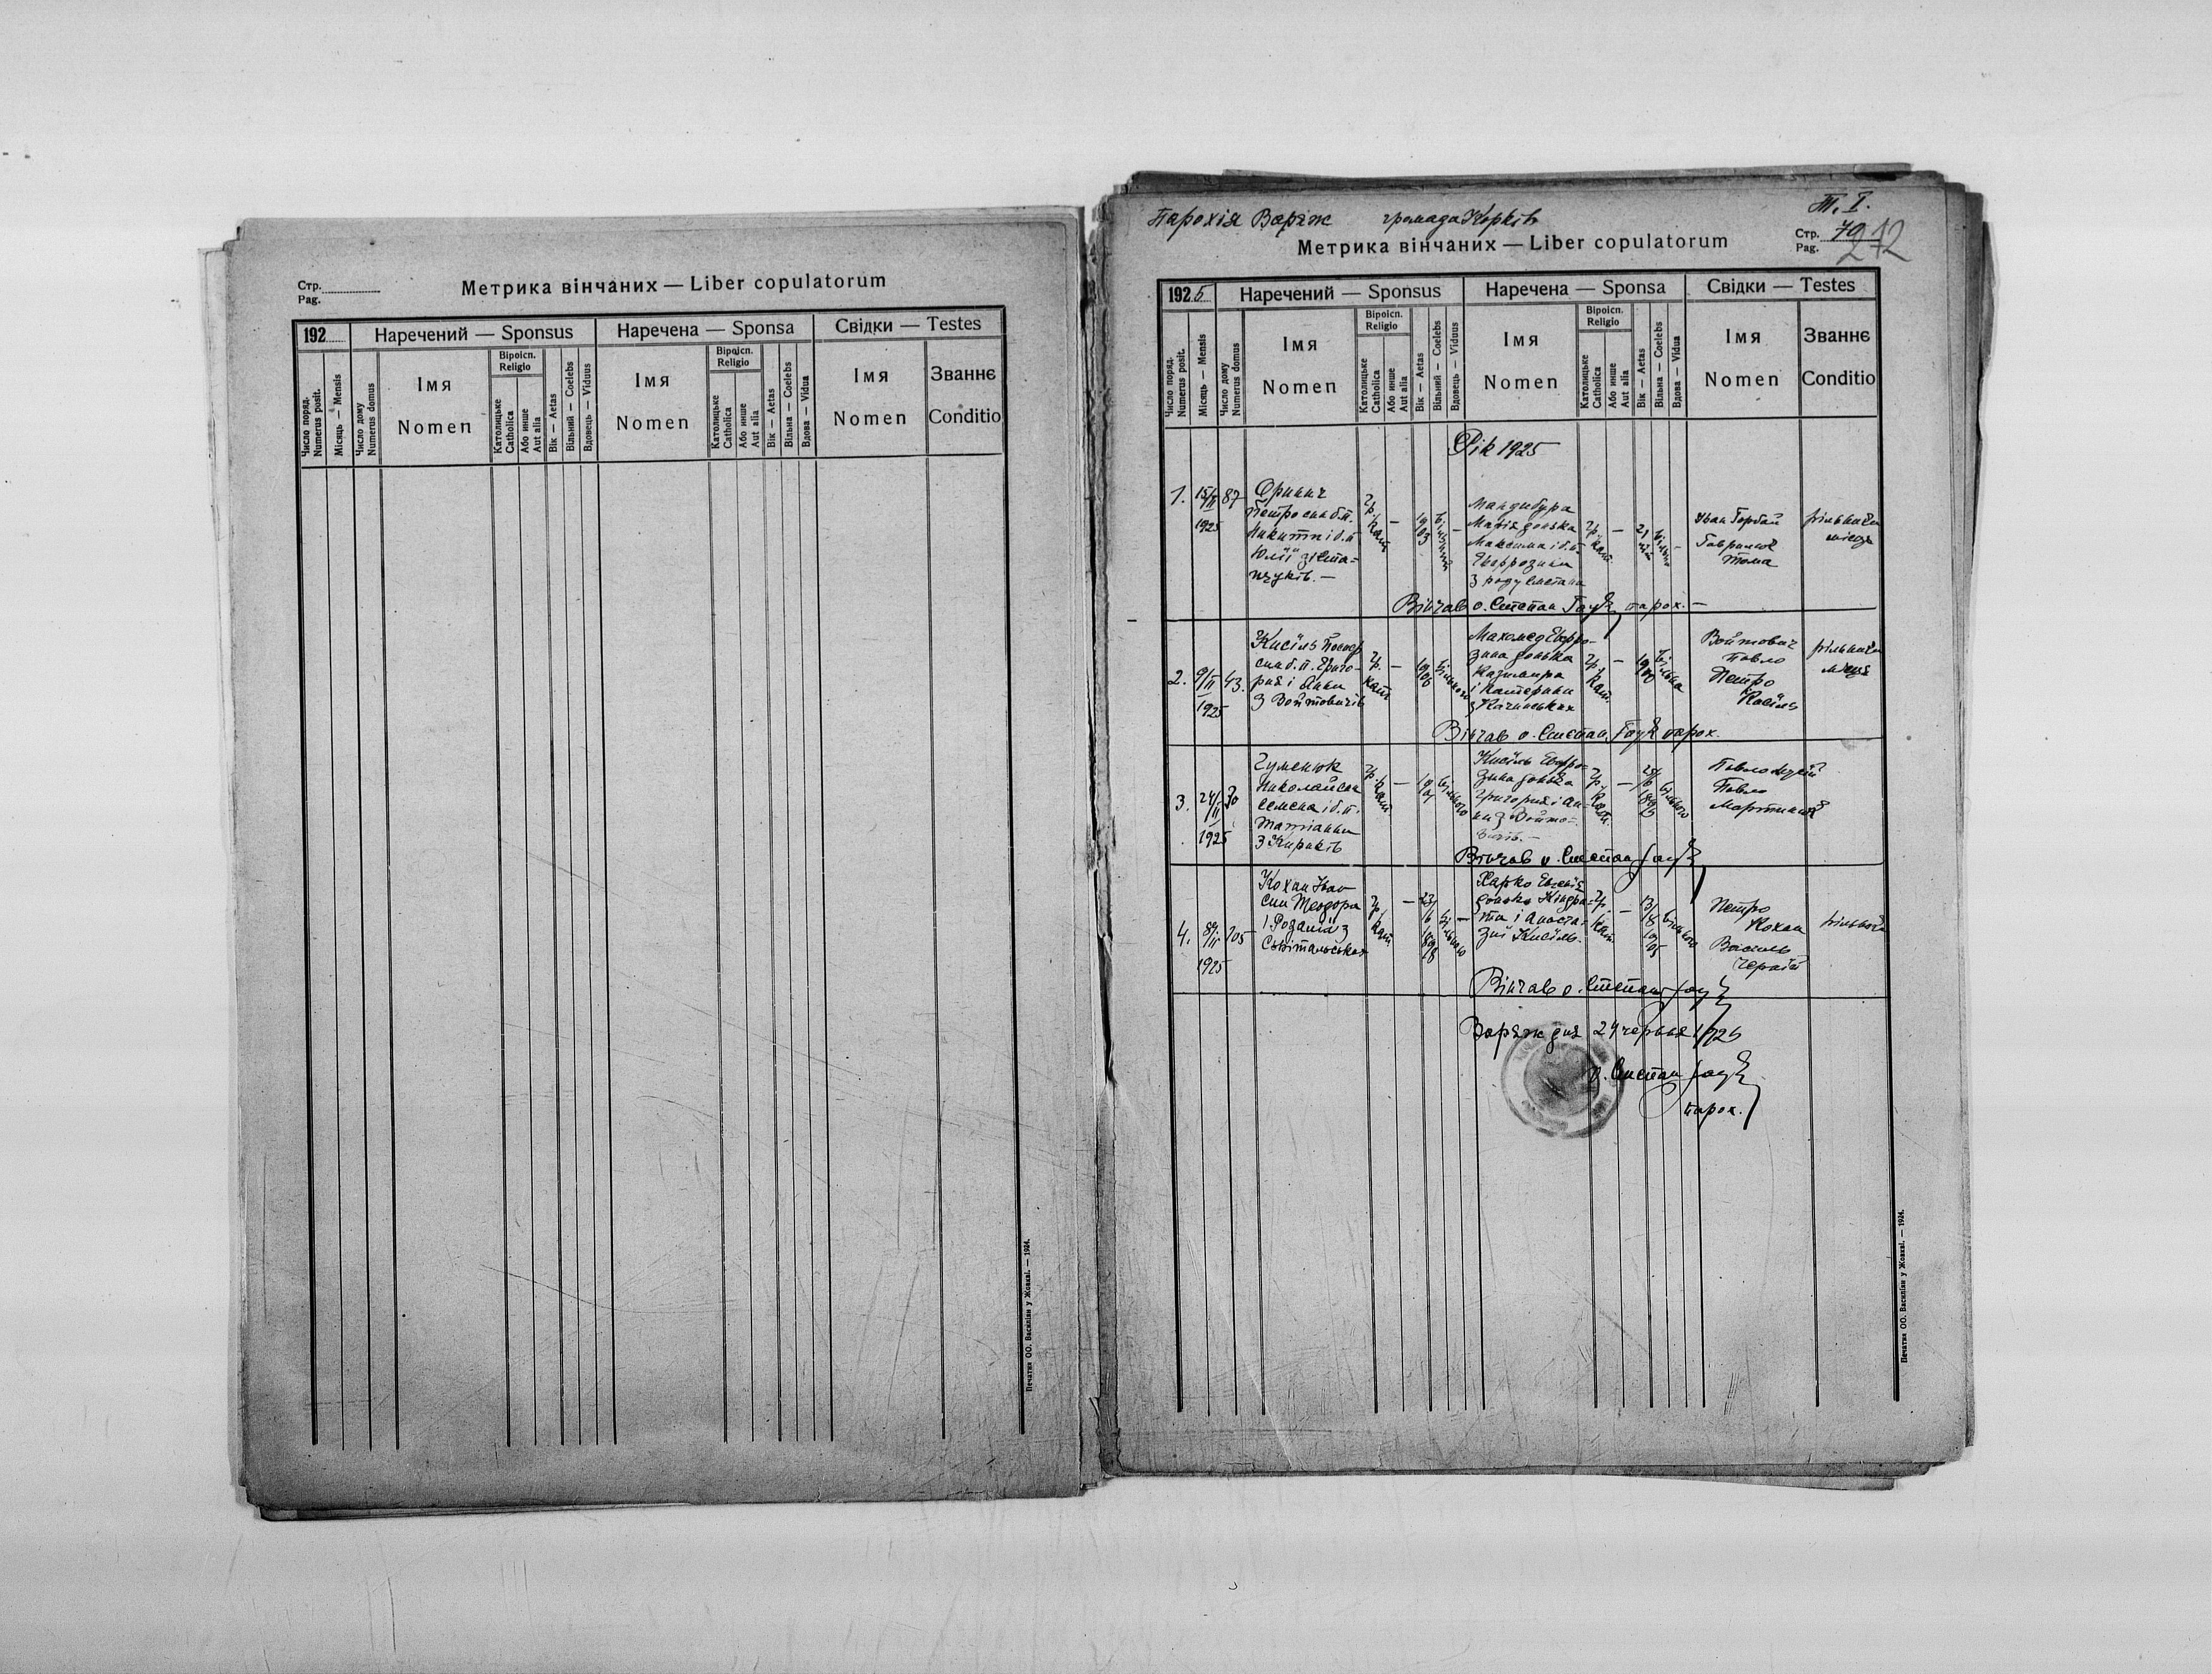 Стр.
Pag.
Метрика вінчаних — Liber copulatorum
192
Наречений — Sponsus
Наречена — Sponsa
Свідки — Testes
Число поряд.
Numerus posit.
Місяць — Mensis
Число дому
Numerus domus
Імя
Nomen
Віроісп.
Religio
Католицьке
Catholica
Або инше
Aut alia
Вік — Aetas
Вільний — Coelebs
Вдовець — Viduus
Імя
Nomen
Віроісп.
Religio
Католицьке
Catholica
Або инше
Aut alia
Вік — Aetas
Вільна — Coelebs
Вдова — Vidua
Імя
Nomen
Званнє
Conditio
Печатня ОО. Василіян у Жовкві. — 1924.
Парохія Варяж громада
Т. I.
Метрика вінчаних — Liber copulatorum
Стр. 70
Pag. 212
1925
Наречений — Sponsus
Наречена — Sponsa
Свідки — Testes
Число поряд.
Numerus posit.
Місяць — Mensis
Число дому
Numerus domus
Імя
Nomen
Віроісп.
Religio
Католицьке
Catholica
Або инше
Aut alia
Вік — Aetas
Вільний — Coelebs
Вдовець — Viduus
Імя
Nomen
Віроісп.
Religio
Католицьке
Catholica
Або инше
Aut alia
Вік — Aetas
Вільна — Coelebs
Вдова — Vidua
Імя
Nomen
Званнє
Conditio
Рік 1925
1. 15/II 1925
87
Петро син б.п.
Микити і б.п.
Юлії з Ста-
гр. кат.
1903
Мандибура
Марія донька
Максима і б.п.
Евфрозини
з роду Смєтана
гр. кат.
Іван Горбай
Гаврилюк
Тома
Вінчав о. Степан Гаук парох. —
2. 9/II 1925
43.
Кисіль Йосиф
син б.п. Григо-
рия і Анни
з Войтовичів
гр. кат.
1906
Махомед Евфро-
зина донька
Казимира
і Катерини
гр. кат.
вільна
Войтович
Павло
Петро
Кисіль
Вінчав о. Степан Гаук парох.
3. 24/II 1925
30
Гуменюк
Николай син
Семена і б.п.
Татіанни
гр. кат.
Кисіль Евфро-
зина донька
Григория і Ан-
ни з Войто-
вичів. —
гр. кат.
Павло
Павло
Вінчав о. Степан Гаук
4.
1925
105
Кохан Іван
син Теодора
і Розалії з
гр. кат.
23/6 1898
Харко Евгенія
донька Кіндра-
та і Анаста-
зиї Кисіль.
гр. кат.
13/8 1905
Петро
Кохан
Василь
Вінчав о. Степан Гаук
Варяж дня 24 червня 1926
о. Степан Гаук
парох.
Печатня ОО. Василіян у Жовкві. — 1924.